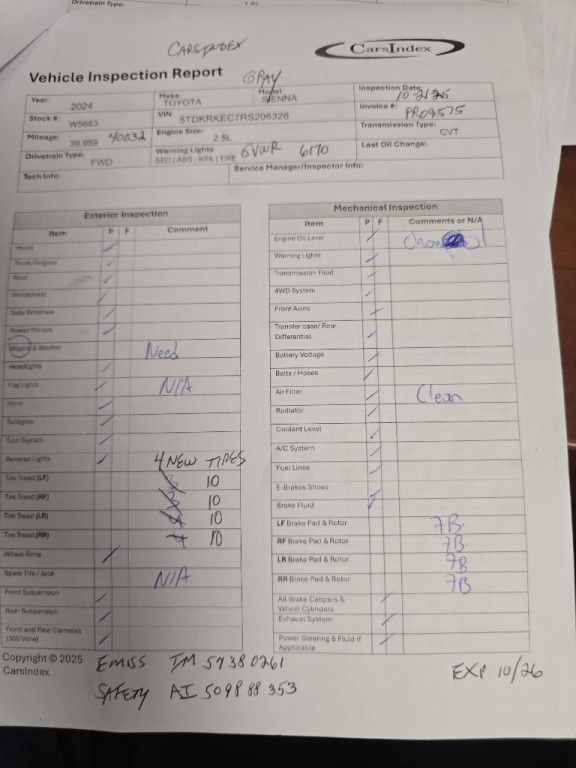 Drivetrain Type:
CARSINDEX
CarsIndex
Vehicle Inspection Report
GRAY
Year: 2024
Make: TOYOTA
Model: SIENNA
Inspection Date:
Stock #: W5683
VIN: 5TDKRKEC7RS206326
Invoice #: PR09575
Mileage: 39,959 40032
Engine Size: 2.5L
Transmission Type: CVT
Drivetrain Type: FWD
Warning Lights
SEC | ABS | BRK | TIRE
GVWR 6170
Last Oil Change:
Tech Info:
Service Manager/Inspector Info:
Exterior Inspection
Item P F Comment
Hood
Trunk/Tailgate
Roof
Windshield
Side Windows
Power Mirrors
Wipers & Washer Need
Headlights
Fog Lights N/A
Horn
Taillights
Turn Signals
Reverse Lights 4 NEW TIRES
Tire Tread (LF) 10
Tire Tread (RF) 10
Tire Tread (LR) 10
Tire Tread (RR) 10
Wheel Rims
Spare Tire / Jack N/A
Front Suspension
Rear Suspension
Front and Rear Cameras
(360 View)
Mechanical Inspection
Item P F Comments or N/A
Engine Oil Level
Warning Lights
Transmission Fluid
4WD System
Front Axles
Transfer case/ Rear
Differential
Battery Voltage
Belts / Hoses
Air Filter Clean
Radiator
Coolant Level
A/C System
Fuel Lines
E-Brakes Shoes
Brake Fluid
LF Brake Pad & Rotor 7B
RF Brake Pad & Rotor 7B
LR Brake Pad & Rotor 7B
RR Brake Pad & Rotor 7B
All Brake Calipers &
Wheel Cylinders
Exhaust System
Power Steering & Fluid if
Applicable
Copyright © 2025
CarsIndex
EMISS IM 57380261
SAFETY AI 509888353
EXP 10/26